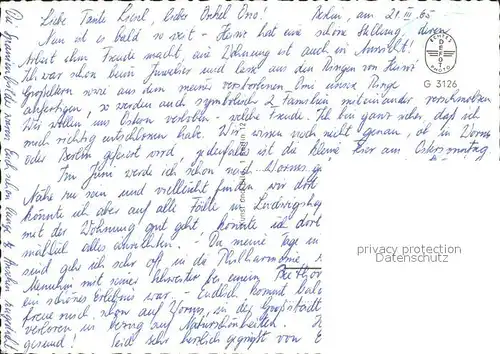 Liebe Tante Liesel, lieber Onkel Ono! Berlin, am 21. III. 65
Nun ist es bald so weit - Heinz hat eine schöne Stellung, deren
Arbeit ihm Freude macht, eine Wohnung ist auch in Aussicht!
Ich war schon beim Juwelier und lasse aus den Ringen von Heinz'
Großeltern sowie aus dem meiner verstorbenen Omi unsere Ringe
anfertigen, so werden auch symbolisch 2 Familien miteinander verschmolzen
Wir wollen uns Ostern verloben - welche Freude. Ich bin ganz sicher, daß ich
mich richtig entschlossen habe. Wir wissen noch nicht genau, ob in Worms
oder Berlin gefeiert wird, jedenfalls ist die kleine Feier am Ostersonntag
Im Juni werde ich schon nach Worms
Nähe zu sein und vielleicht finden wir dort
könnte ich aber auf alle Fälle in Ludwigshafen
mit der Wohnung gut geht, könnte ich dort
mählich alles einrichten. Da meine Tage in
sind gehe ich sehr oft in die Philharmonie,
Menuhin mit seiner Schwester bei einem Beethoven
ein schönes Erlebnis war. Endlich kommt
freue mich schon auf Worms, in der Großstadt
verloren in bezug auf Naturschönheiten.
gesund! Seid sehr herzlich gegrüßt von
G 3126
privacy protection
Datenschutz